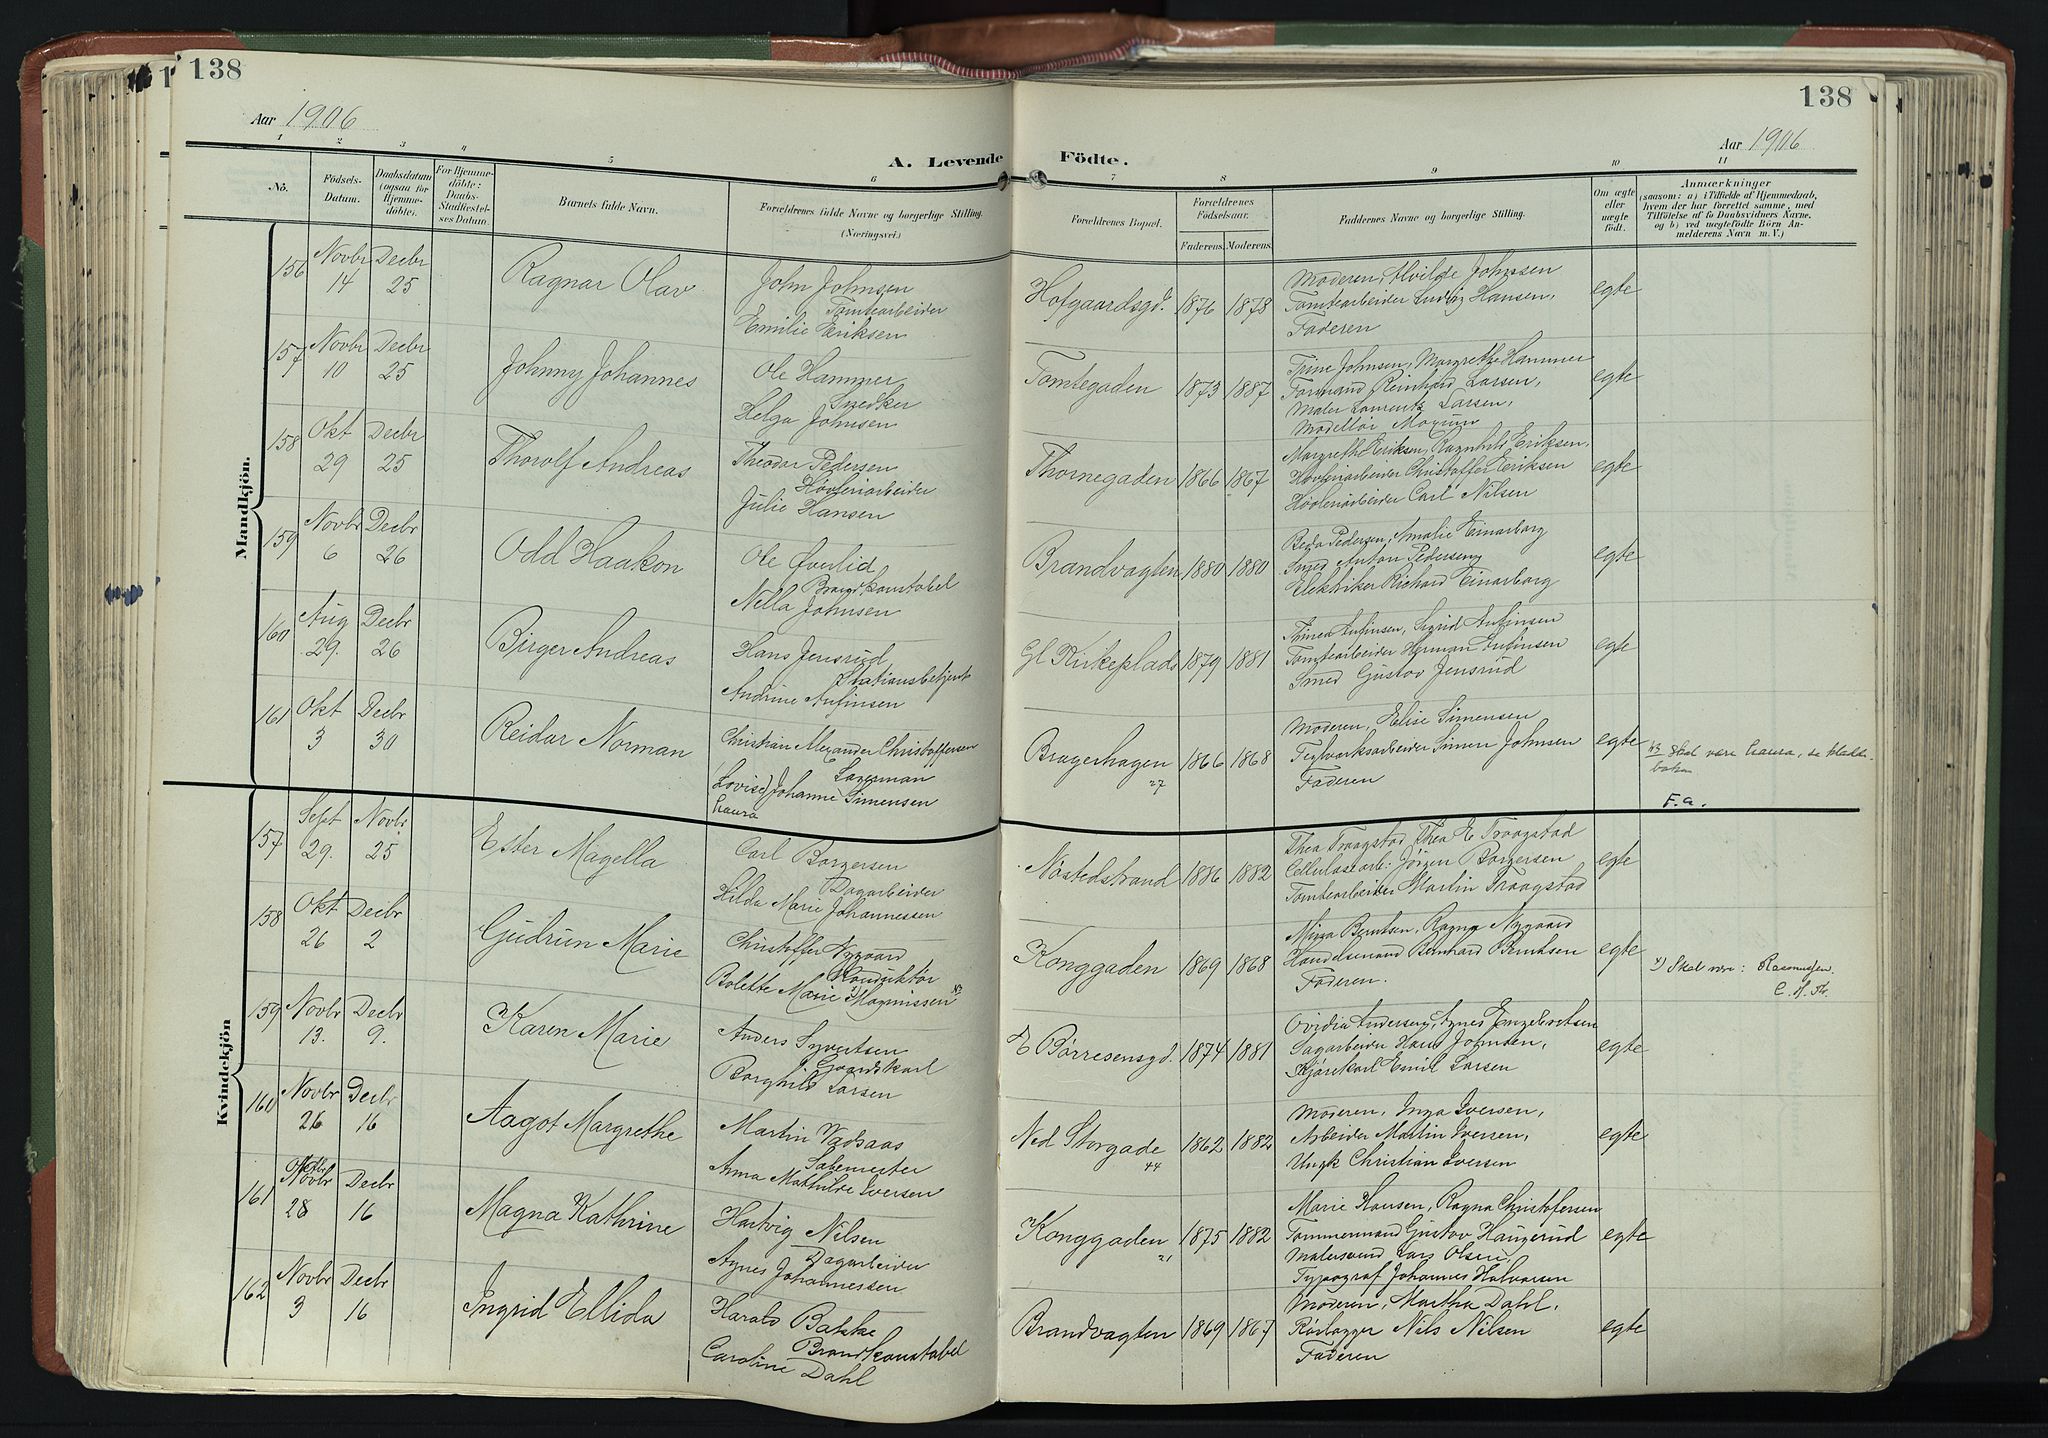 138
138
Aar 1906
Aar 1906
A. Levende Födte.
1 2 3 4 5 6 7 8 9 10 11
No.
Födsels-Datum.
Daabsdatum (ogsaa for Hjemmedöbte).
For Hjemmedöbte: Daabs-Stadfæstelses Datum.
Barnets fulde Navn.
Forældrenes fulde Navne og borgerlige Stilling. (Næringsvei.)
Forældrenes Bopæl.
Forældrenes Födselsaar.
Faderens. Moderens.
Faddernes Navne og borgerlige Stilling.
Om ægte eller uægte født.
Anmærkninger
(saasom: a) i Tilfælde af Hjemmedaab,
hvem der har forrettet samme, med
Tilföielse af to Daabsvidners Navne,
og b) ved uægtefödte Börn An-
melderens Navn m. V.)
Mandkjön.
156 Novbr 14 Decbr 25 Ragnar Olav
John Johnsen
Tomtearbeider
Emilie Eriksen
Hofgaardsgd. 1876 1878
Moderen, Hvilde Johnsen
Tomtearbeider Ludvig Hansen,
Faderen
egte
157 Novbr 10 Decbr 25 Johnny Johannes
Ole Hammer
Snedker
Helga Johnsen
Tomtegaden 1873 1887
Trine Johnsen, Margrethe Hammer
Formand Reinhard Larsen,
Maler Laurentz Larsen,
Modellør
egte
158 Okt 29 Decbr 25 Thorolf Andreas
Theodor Pedersen
Høvleriarbeider
Julie Hansen
Thornegaden 1866 1867
Margrethe Eriksen, Ragnhild Eriksen,
Høvleriarbeider Christoffer Eriksen
Høvleriarbeider Carl Nilsen
egte
159 Novbr 6 Decbr 26 Odd Haakon
Ole Øverlid
Brandkonstabel
Nella Johnsen
Brandvagten 1880 1880
Pedersen, Amalie Einarborg
Smed Anton Pedersen,
Elektriker Richard Einarborg
egte
160 Aug 29. Decbr 26 Birger Andreas
Hans Jensrud
Stationsbetjent
Andrine Aufinsen
Gl Kirkeplads 1879 1881
Aufinsen, Sigrid Aufinsen
Tomtearbeider Herman Aufinsen
Smed Gustav Jensrud
egte
161 Okt 3 Decbr 30 Reidar Norman
Christian Alexander Christoffersen
Lagerman
(Lovise) Johanne Simensen
Laura
Bragerhagen 27 1866 1868
Moderen, Elise Simensen
Teglværksarbeider Simen Johnsen
Faderen
egte
Skal være Laura, se kladde-
boken
F.a.
Kvindekjön
157 Sept 29. Novbr 25 Ester Magella
Carl Borgersen
Dagarbeider
Hilda Marie Johannessen
Nøstedstrand 1886 1882
Thea Traagstad, Thea E Traagstad
Cellulosearb: Jørgen Borgersen
Tomtearbeider Martin Traagstad
egte
158 Okt 26 Decbr 2 Gudrun Marie
Christoffer Nygaard
Konduktør
Bolette Marie Magnussen x)
Konggaden 1869 1868
Berntsen, Ragna Nygaard
Handelsmand Bernhard Berntsen
Faderen.
egte
x) Skal være: Rasmussen.
159 Novbr 13. Decbr 9. Karen Marie
Anders Syvertsen
Gaardskarl
Borghild Larsen
E Børresensgd. 1874 1881
Ovidia Andersen, Agnes Engebretsen
Sagarbeider Hans Johnsen,
Kjørekarl Emil Larsen
egte
160 Novbr 26 Decbr 16 Aagot Margrethe
Martin Vadsaas
Salemester
Anna Mathilde Iversen
Ned Storgade 44 1862 1882
Moderen, Inga Iversen,
Arbeider Martin Iversen,
Ungk Christian Iversen
egte
161 Novbr 28 Decbr 16 Magna Kathrine
Hartvig Nilsen
Dagarbeider
Agnes Johannessen
Konggaden 21 1875 1882
Marie Hansen, Ragna Christofersen
Tømmermand Gustav Haugerud
Malersvend Lars Olsen,
Typograf Johannes Halvorsen
egte
162 Novbr 3 Decbr 16 Ingrid Ellida
Harald Bakke
Brandkonstabel
Caroline Dahl
Brandvagten 1869 1867
Moderen, Martha Dahl,
Rørlægger Nils Nilsen
Faderen
egte